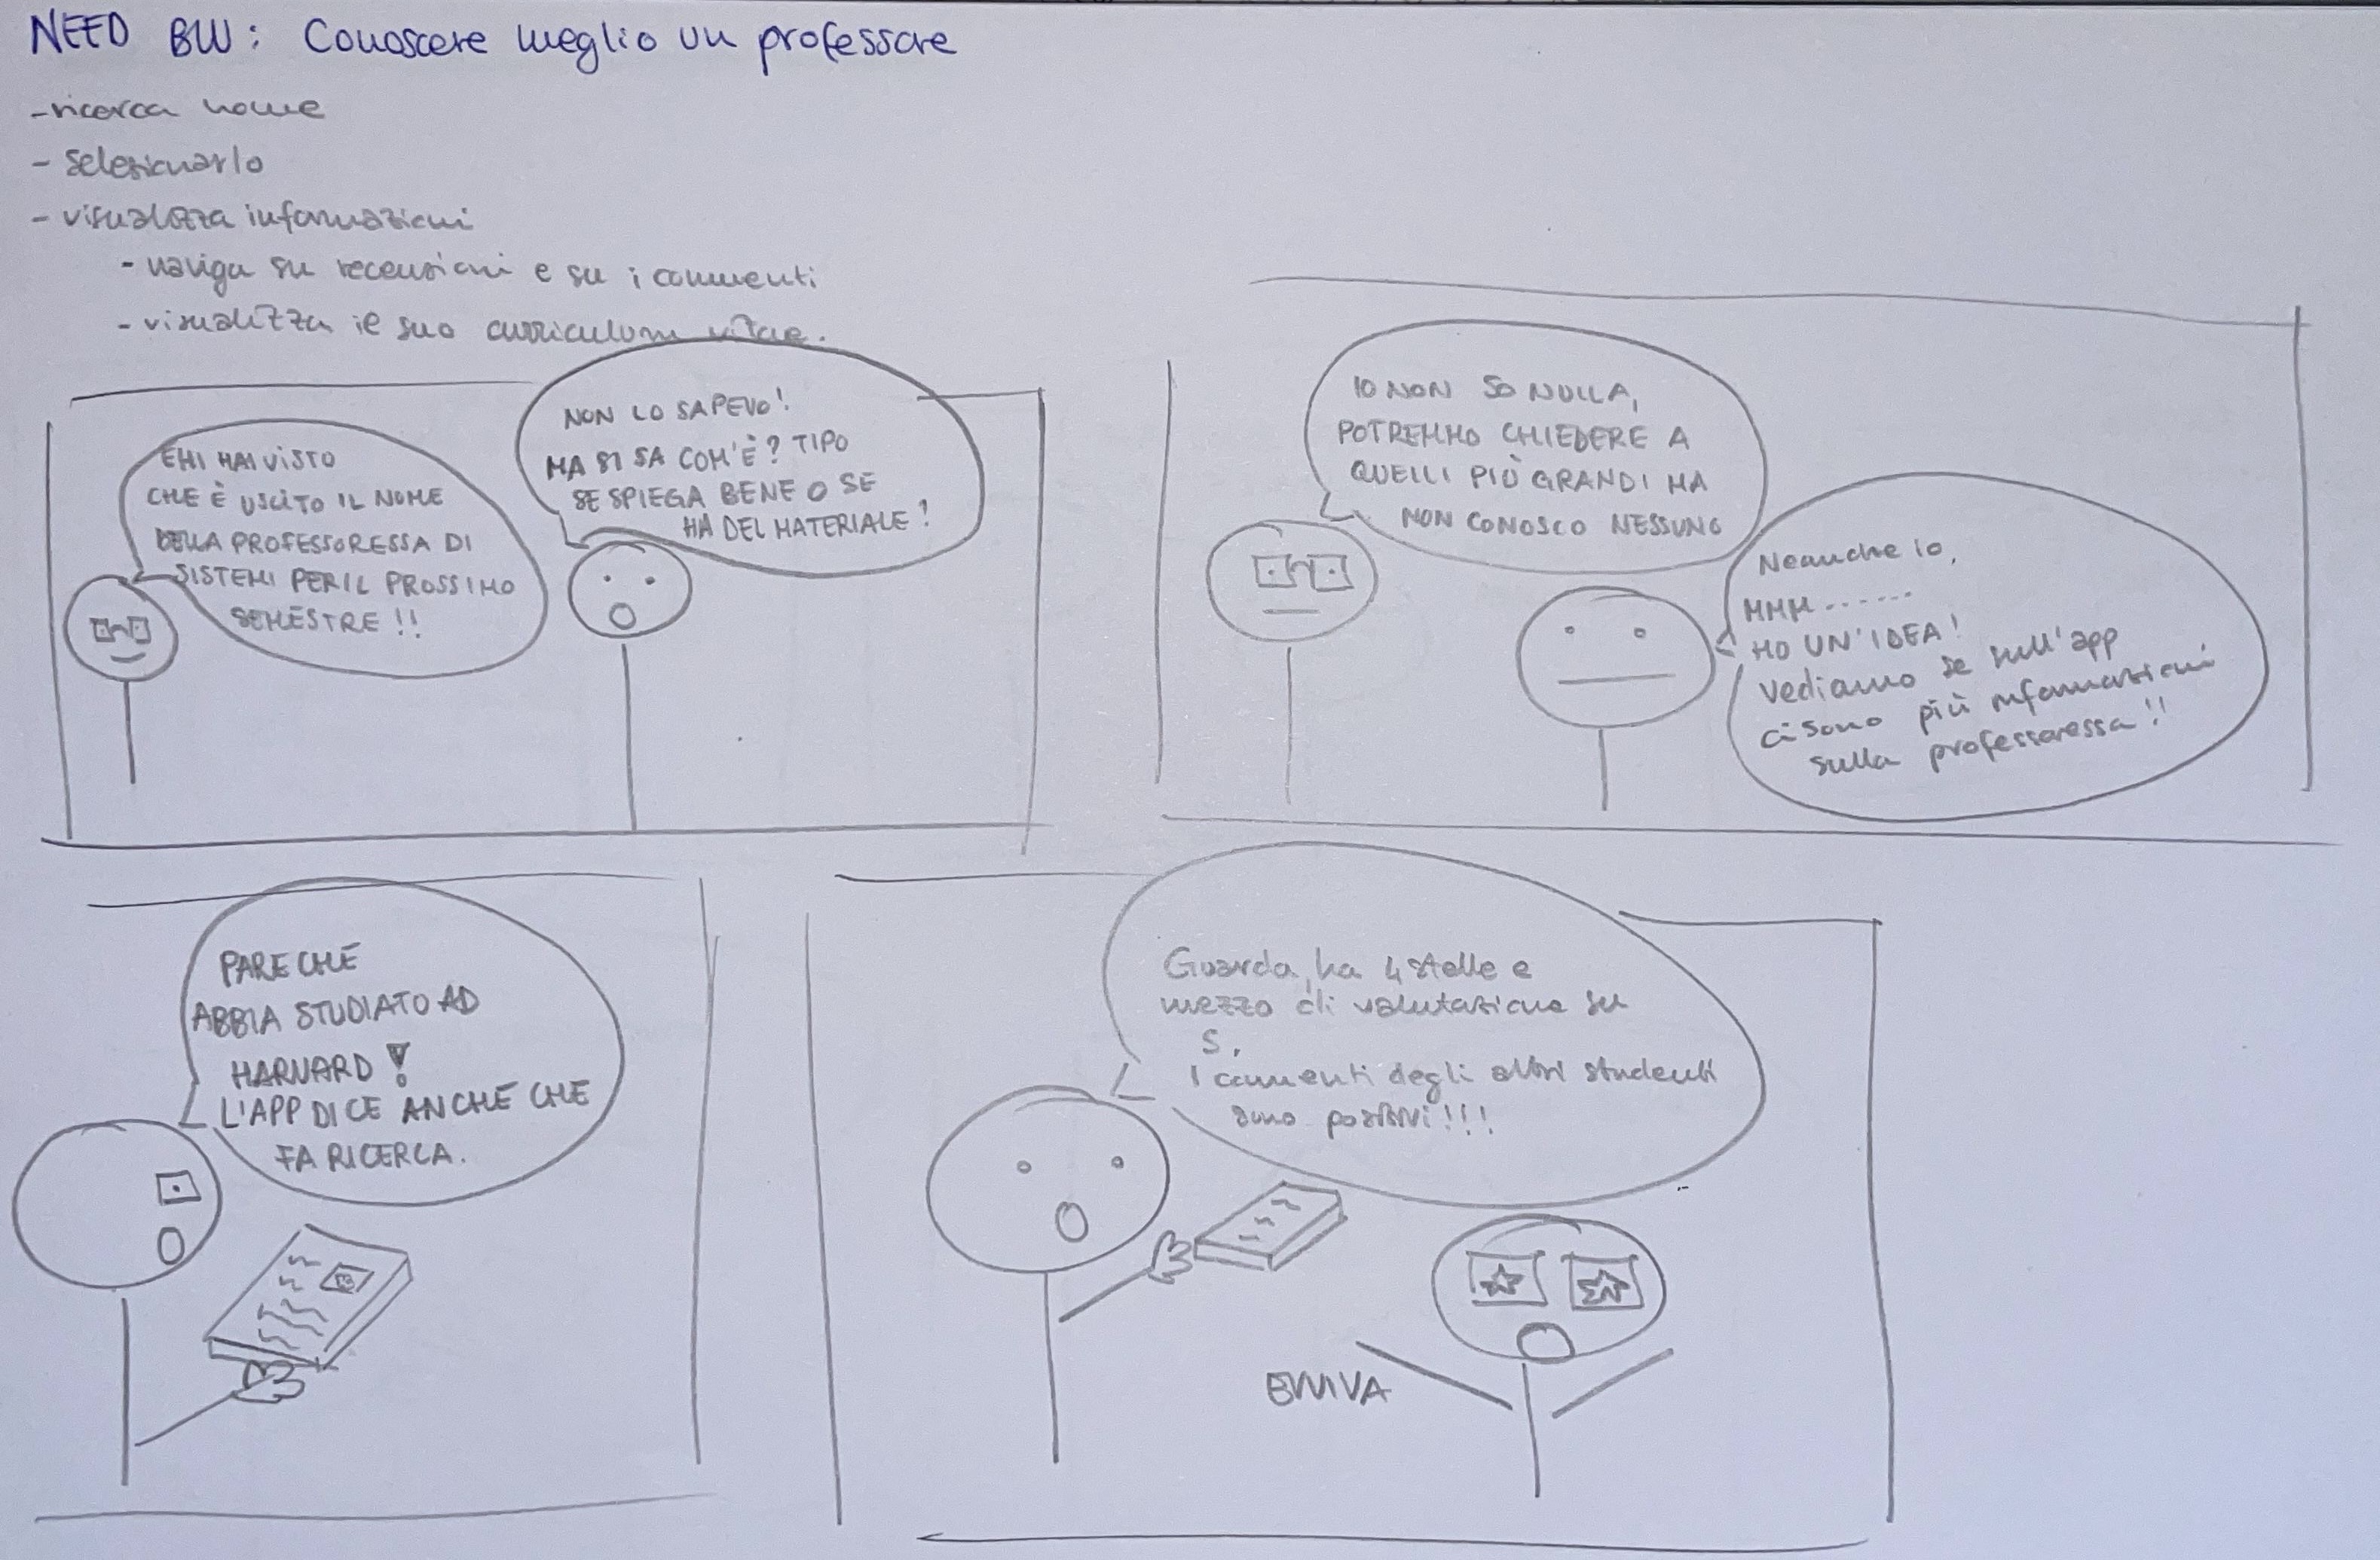 NEED BW: Conoscere meglio un professore
-ricerca nome
- Selezionarlo
- visualizza informazioni
- naviga su recensioni e su i commenti
- visualizza il suo curriculum vitae.
EHI HAI VISTO
CHE È USCITO IL NOME
DELLA PROFESSORESSA DI
SISTEMI PER IL PROSSIMO
SEMESTRE !!
NON LO SAPEVO!
MA SI SA COM'È? TIPO
SE SPIEGA BENE O SE
HA DEL MATERIALE?
IO NON SO NULLA,
POTREMMO CHIEDERE A
QUELLI PIÙ GRANDI MA
NON CONOSCO NESSUNO
Neanche io,
MMM.......
HO UN'IDEA!
Vediamo se sull'app
ci sono più informazioni
sulla professoressa!!
PARE CHE
ABBIA STUDIATO AD
HARVARD!
L'APP DICE ANCHE CHE
FA RICERCA.
Guarda, ha 4 stelle e
mezzo di valutazione su
5.
I commenti degli altri studenti
sono positivi!!!
EVVIVA